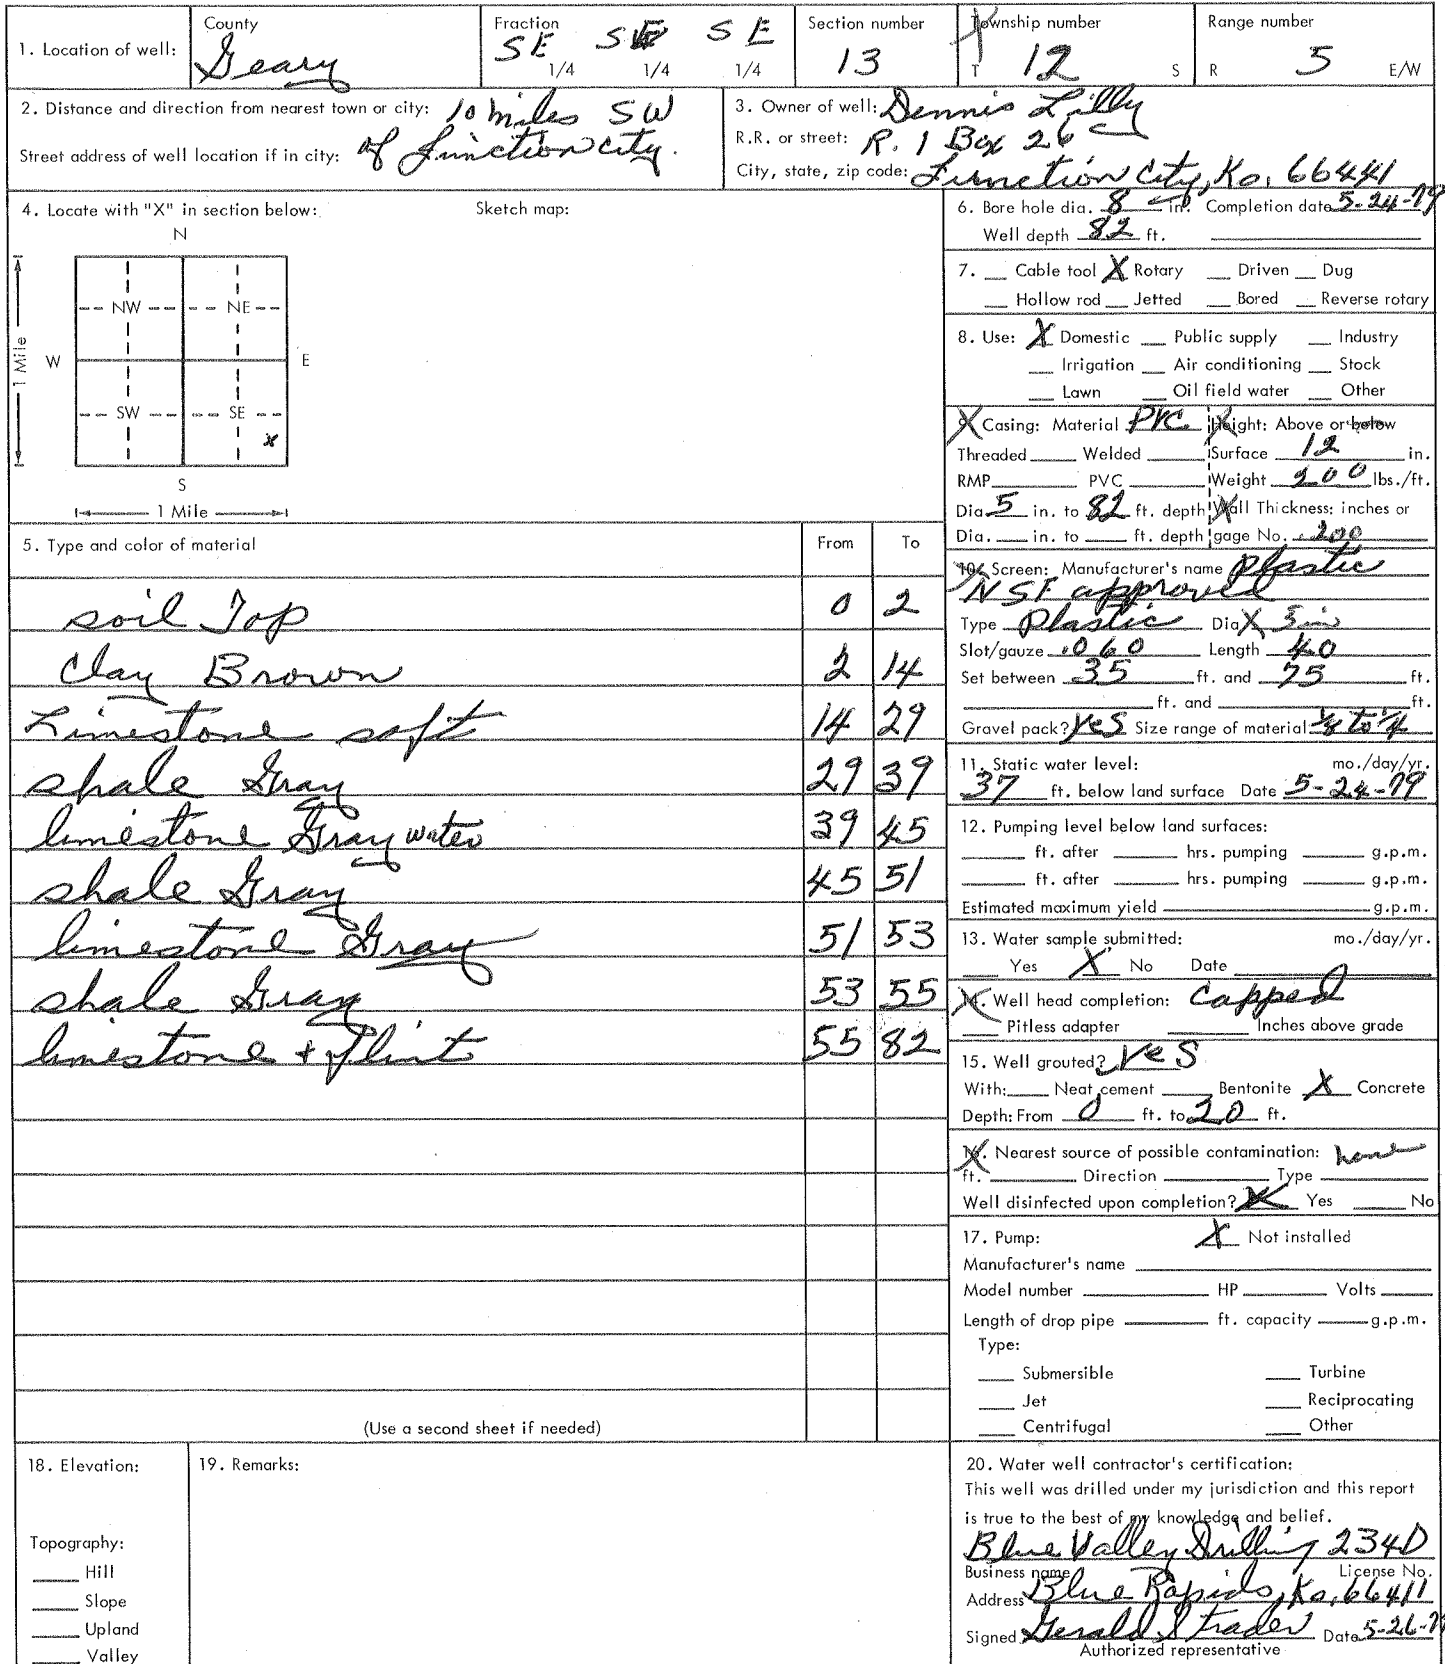 1. Location of well: County Geary Fraction SE 1/4 SE 1/4 SE 1/4 Section number 13 Township number T 12 S Range number R 5 E/W
2. Distance and direction from nearest town or city: 10 miles SW
of Junction City.
Street address of well location if in city:
3. Owner of well: Dennis Lilly
R.R. or street: R. 1 Box 26
City, state, zip code: Junction City, Ks. 66441
4. Locate with "X" in section below: Sketch map:
N
NW NE
W E
SW SE
X
S
1 Mile
1 Mile
5. Type and color of material From To
soil Top 0 2
Clay Brown 2 14
Limestone soft 14 29
shale Gray 29 39
limestone Gray water 39 45
shale Gray 45 51
limestone Gray 51 53
shale Gray 53 55
limestone + flint 55 82
(Use a second sheet if needed)
6. Bore hole dia. 8 in. Completion date 5-24-79
Well depth 82 ft.
7. Cable tool X Rotary Driven Dug
Hollow rod Jetted Bored Reverse rotary
8. Use: X Domestic Public supply Industry
Irrigation Air conditioning Stock
Lawn Oil field water Other
9. Casing: Material PVC Height: Above or below
Threaded Welded Surface 12 in.
RMP PVC Weight 200 lbs./ft.
Dia 5 in. to 82 ft. depth Wall Thickness: inches or
Dia. in. to ft. depth gage No. .200
10. Screen: Manufacturer's name Plastic
NSF approved
Type Plastic Dia X 5 in
Slot/gauze .060 Length 40
Set between 35 ft. and 75 ft.
ft. and ft.
Gravel pack? yes Size range of material 1/8 to 1/4
11. Static water level: mo./day/yr.
37 ft. below land surface Date 5-24-79
12. Pumping level below land surfaces:
ft. after hrs. pumping g.p.m.
ft. after hrs. pumping g.p.m.
Estimated maximum yield g.p.m.
13. Water sample submitted: mo./day/yr.
Yes X No Date
14. Well head completion: Capped
Pitless adapter Inches above grade
15. Well grouted? yes
With: Neat cement Bentonite X Concrete
Depth: From 0 ft. to 20 ft.
16. Nearest source of possible contamination: none
ft. Direction Type
Well disinfected upon completion? X Yes No
17. Pump: X Not installed
Manufacturer's name
Model number HP Volts
Length of drop pipe ft. capacity g.p.m.
Type:
Submersible Turbine
Jet Reciprocating
Centrifugal Other
18. Elevation:
Topography:
Hill
Slope
Upland
Valley
19. Remarks:
20. Water well contractor's certification:
This well was drilled under my jurisdiction and this report
is true to the best of my knowledge and belief.
Blue Valley Drilling 234D
Business name License No.
Address Blue Rapids, Ks. 66411
Signed Gerald Strader Date 5-26-79
Authorized representative